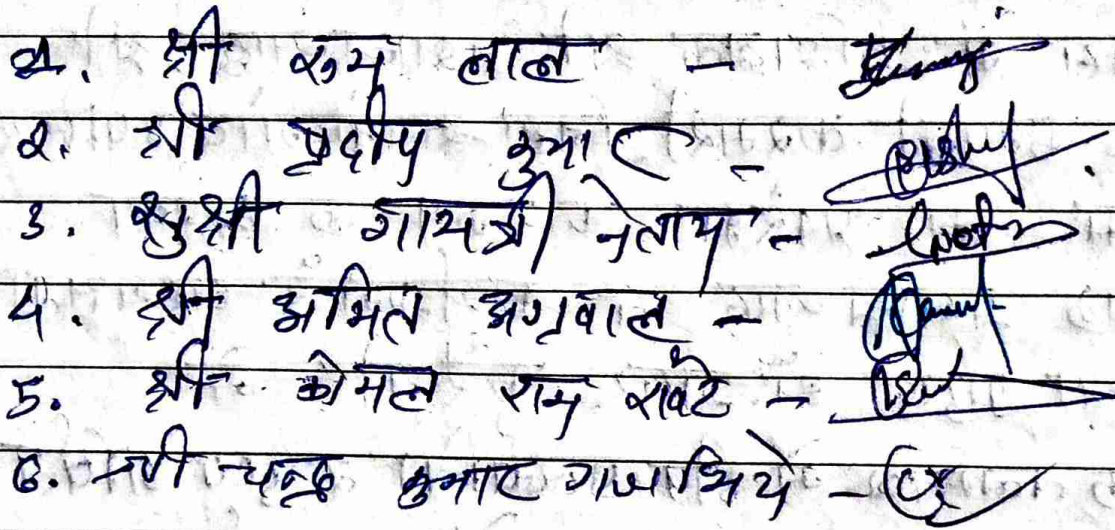 1. श्री रूप लाल -
2. श्री प्रदीप कुमार -
3. सुश्री गायत्री नेताम -
4. श्री अमित अग्रवाल -
5. श्री कोमल राम रावटे -
6. श्री चन्द्र कुमार गजभिये -